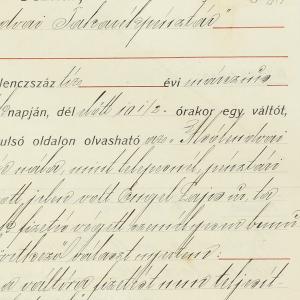 dvai Takarékpénztár"
lenczszáz tíz évi márczius
napján, dél előtt 10 1/2 órakor egy váltót,
ulsó oldalon olvasható az Alsólendvai
mint telepesnél, pénztári
ott, jelen volt Engel Lajos úr, ta
fizetés végett személyesen bemu
övetkező választ nyertem:
a váltóra fizetést nem teljesít-